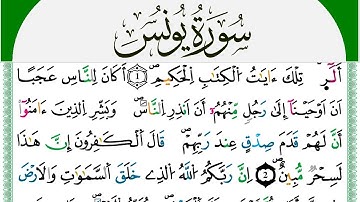 سُورَةُ يُونُسَ
أَلَٓرۖ تِلْكَ ءَايَٰتُ اُ۬لْكِتَٰبِ اِ۬لْحَكِيمِۖ ١ أَكَانَ لِلنَّاسِ عَجَباً
اَنَ اَوْحَيْنَآ إِلَىٰ رَجُلٖ مِّنْهُمُۥٓ أَنَ اَنذِرِ اِ۬لنَّاسَۖ وَبَشِّرِ اِ۬لذِينَ ءَامَنُوٓاْ
أَنَّ لَهُمْ قَدَمَ صِدْقٍ عِندَ رَبِّهِمْۖ قَالَ اَ۬لْكَٰفِرُونَ إِنَّ هَٰذَا
لَسِحْرٞ مُّبِينٌۖ ٢ إِنَّ رَبَّكُمُ اُ۬للَّهُ اُ۬لذِے خَلَقَ اَ۬لسَّمَٰوَٰتِ وَالَارْضَ